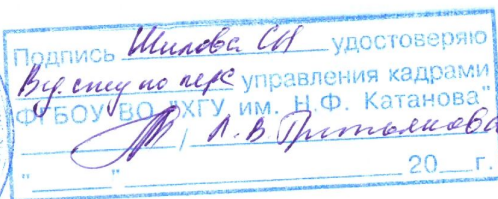 Подпись Шилова СН удостоверяю
Вед. спец по перс управления кадрами
ФГБОУ ВО "ХГУ им. Н.Ф. Катанова"
/ Л. В.
"___" 20__г.